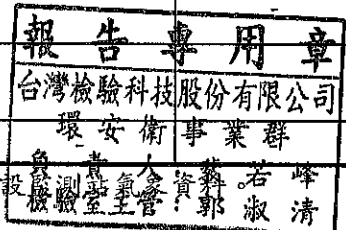 報告專用章
台灣檢驗科技股份有限公司
環安衛事業群
負責人 若峰
檢驗室主管:郭淑清